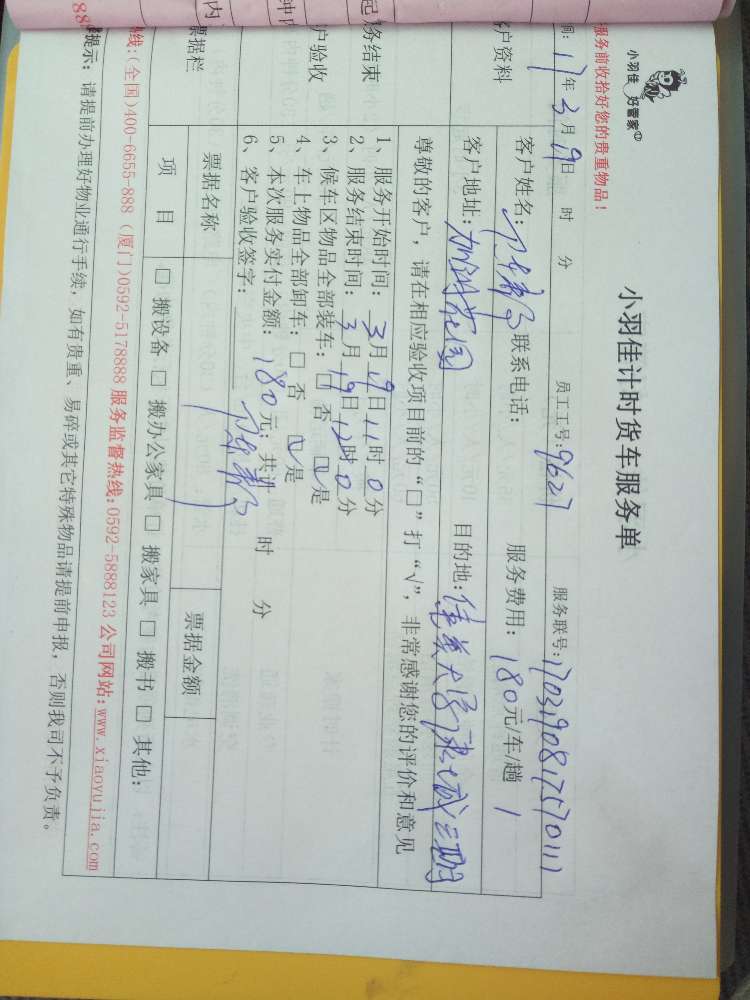 小羽佳 好管家
小羽佳计时货车服务单
服务前收拾好您的贵重物品！
间：17年3月19日 时 分 员工工号：9627 服务联号：
户资料
客户姓名： 联系电话： 服务费用：180元/车/趟 1
客户地址： 花园 目的地： 三期
尊敬的客户，请在相应验收项目前的“□”打“√”，非常感谢您的评价和意见
务结束
户验收
1、服务开始时间：3月19日11时0分
2、服务结束时间：3月19日12时0分
3、候车区物品全部装车：□否 □是
4、车上物品全部卸车：□否 □是
5、本次服务实付金额：180元；共计 时 分
6、客户验收签字：
票据栏
票据名称 票据金额
项 目 □搬设备 □搬办公家具 □搬家具 □搬书 □其他：
热线:(全国)400-6655-888 (厦门)0592-5178888 服务监督热线:0592-5888123 公司网站:www.xiaoyujia.com
提示：请提前办理好物业通行手续，如有贵重、易碎或其它特殊物品请提前申报，否则我司不予负责。